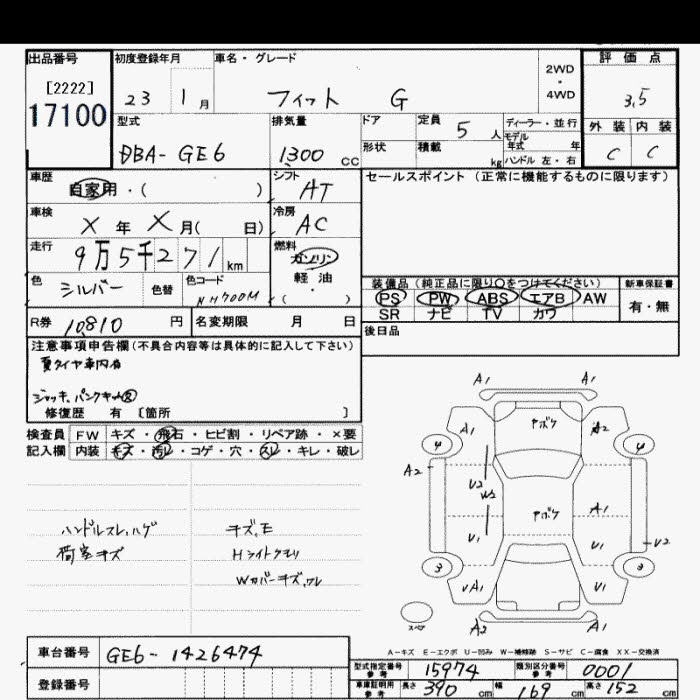 出品番号 初度登録年月 車名・グレード 評価点
[2222] 2WD
17100 23 1月 フィット G ・4WD 3.5
型式 排気量 ドア 定員 5人 ディーラー・並行 外装 内装
DBA-GE6 1300 cc 形状 積載 kg モデル年式 年 C C
ハンドル 左・右
車歴 自家用・( ) シフト AT セールスポイント(正常に機能するものに限ります)
車検 X年 X月( 日) 冷房 AC
走行 9万5千271km 燃料 ガソリン
軽油
・( )
色 シルバー 色替 色コード NH700M
装備品(純正品に限り○をつけてください) 新車保証書
PS PW ABS エアB AW 有・無
SR ナビ TV カワ
R券 10,810 円 名変期限 月 日 後日品
注意事項申告欄(不具合内容等は具体的に記入して下さい)
夏タイヤ車内有
ジャッキ、パンクキット
修復歴 有 〔箇所 〕
検査員 FW キズ・飛石・ヒビ割・リペア跡・×要
記入欄 内装 キズ・汚レ・コゲ・穴・スレ・キレ・破レ
ハンドルスレ,ハゲ キズ,E
荷室キズ Hライトクモリ
Wカバーキズ,ワレ
A1 A1
A1 ヤボケ A2
4 4
A2 U2
W2
ヤボケ A1
U1 U1 U2
3 3
UA1 U1
スペア A2 A1
A-キズ E-エクボ U-凹み W-補修跡 S-サビ C-腐食 XX-交換済
車台番号 GE6-1426474
型式指定番号 参考 15974 類別区分番号 参考 0001
登録番号
車庫証明用 参考 長さ 390 cm 幅 169 cm 高さ 152 cm